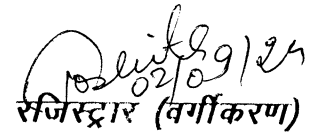 02/09/24
रजिस्ट्रार (वर्गीकरण)